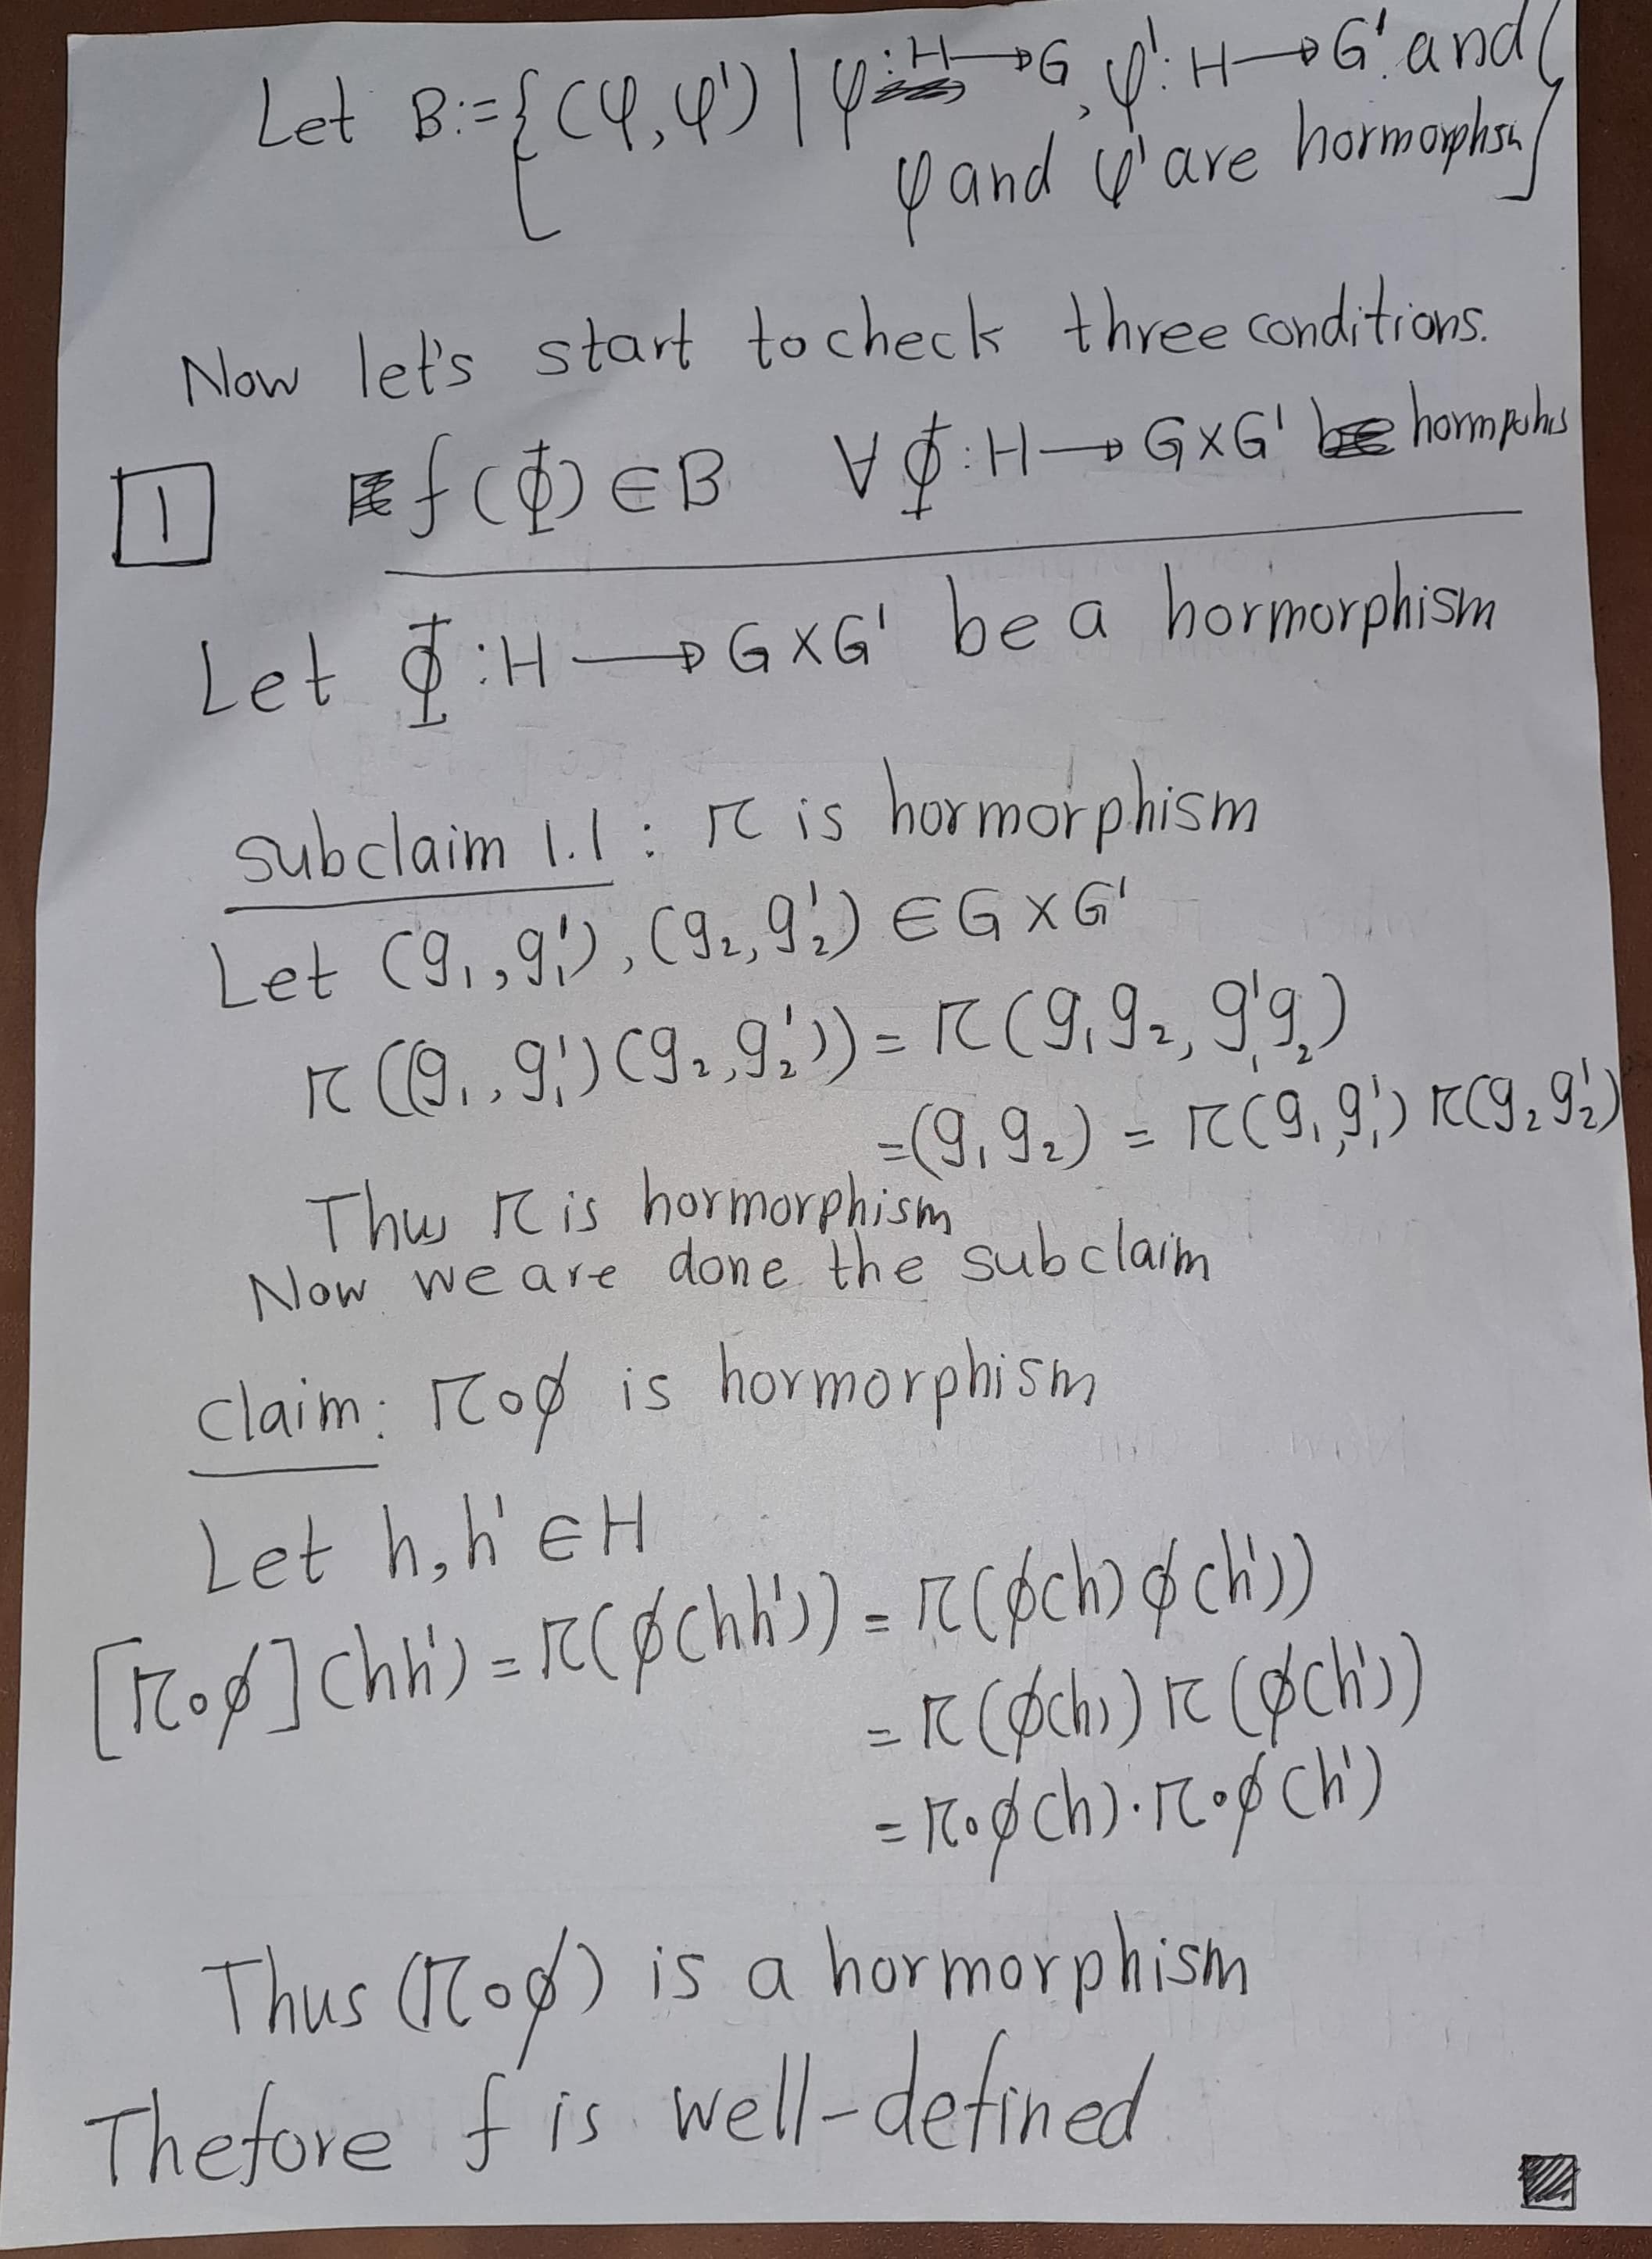 Let B:={(φ,φ') | φ:H→G, φ':H→G' and
φ and φ' are hormorphsm}
Now let's start to check three conditions.
1 f(Φ)∈B ∀Φ:H→G×G'
Let Φ:H→G×G' be a hormorphism
subclaim 1.1: π is hormorphism
Let (g₁,g₁'),(g₂,g₂')∈G×G'
π((g₁,g₁')(g₂,g₂'))=π(g₁g₂,g₁'g₂)
=(g₁g₂)=π(g₁,g₁')π(g₂g₂')
Thus π is hormorphism
Now we are done the subclaim
claim: π∘ϕ is hormorphism
Let h,h'∈H
[π∘ϕ](hh')=π(ϕ(hh'))=π(ϕ(h)ϕ(h'))
=π(ϕ(h))π(ϕ(h'))
=π∘ϕ(h)·π∘ϕ(h')
Thus (π∘ϕ) is a hormorphism
Thefore f is well-defined